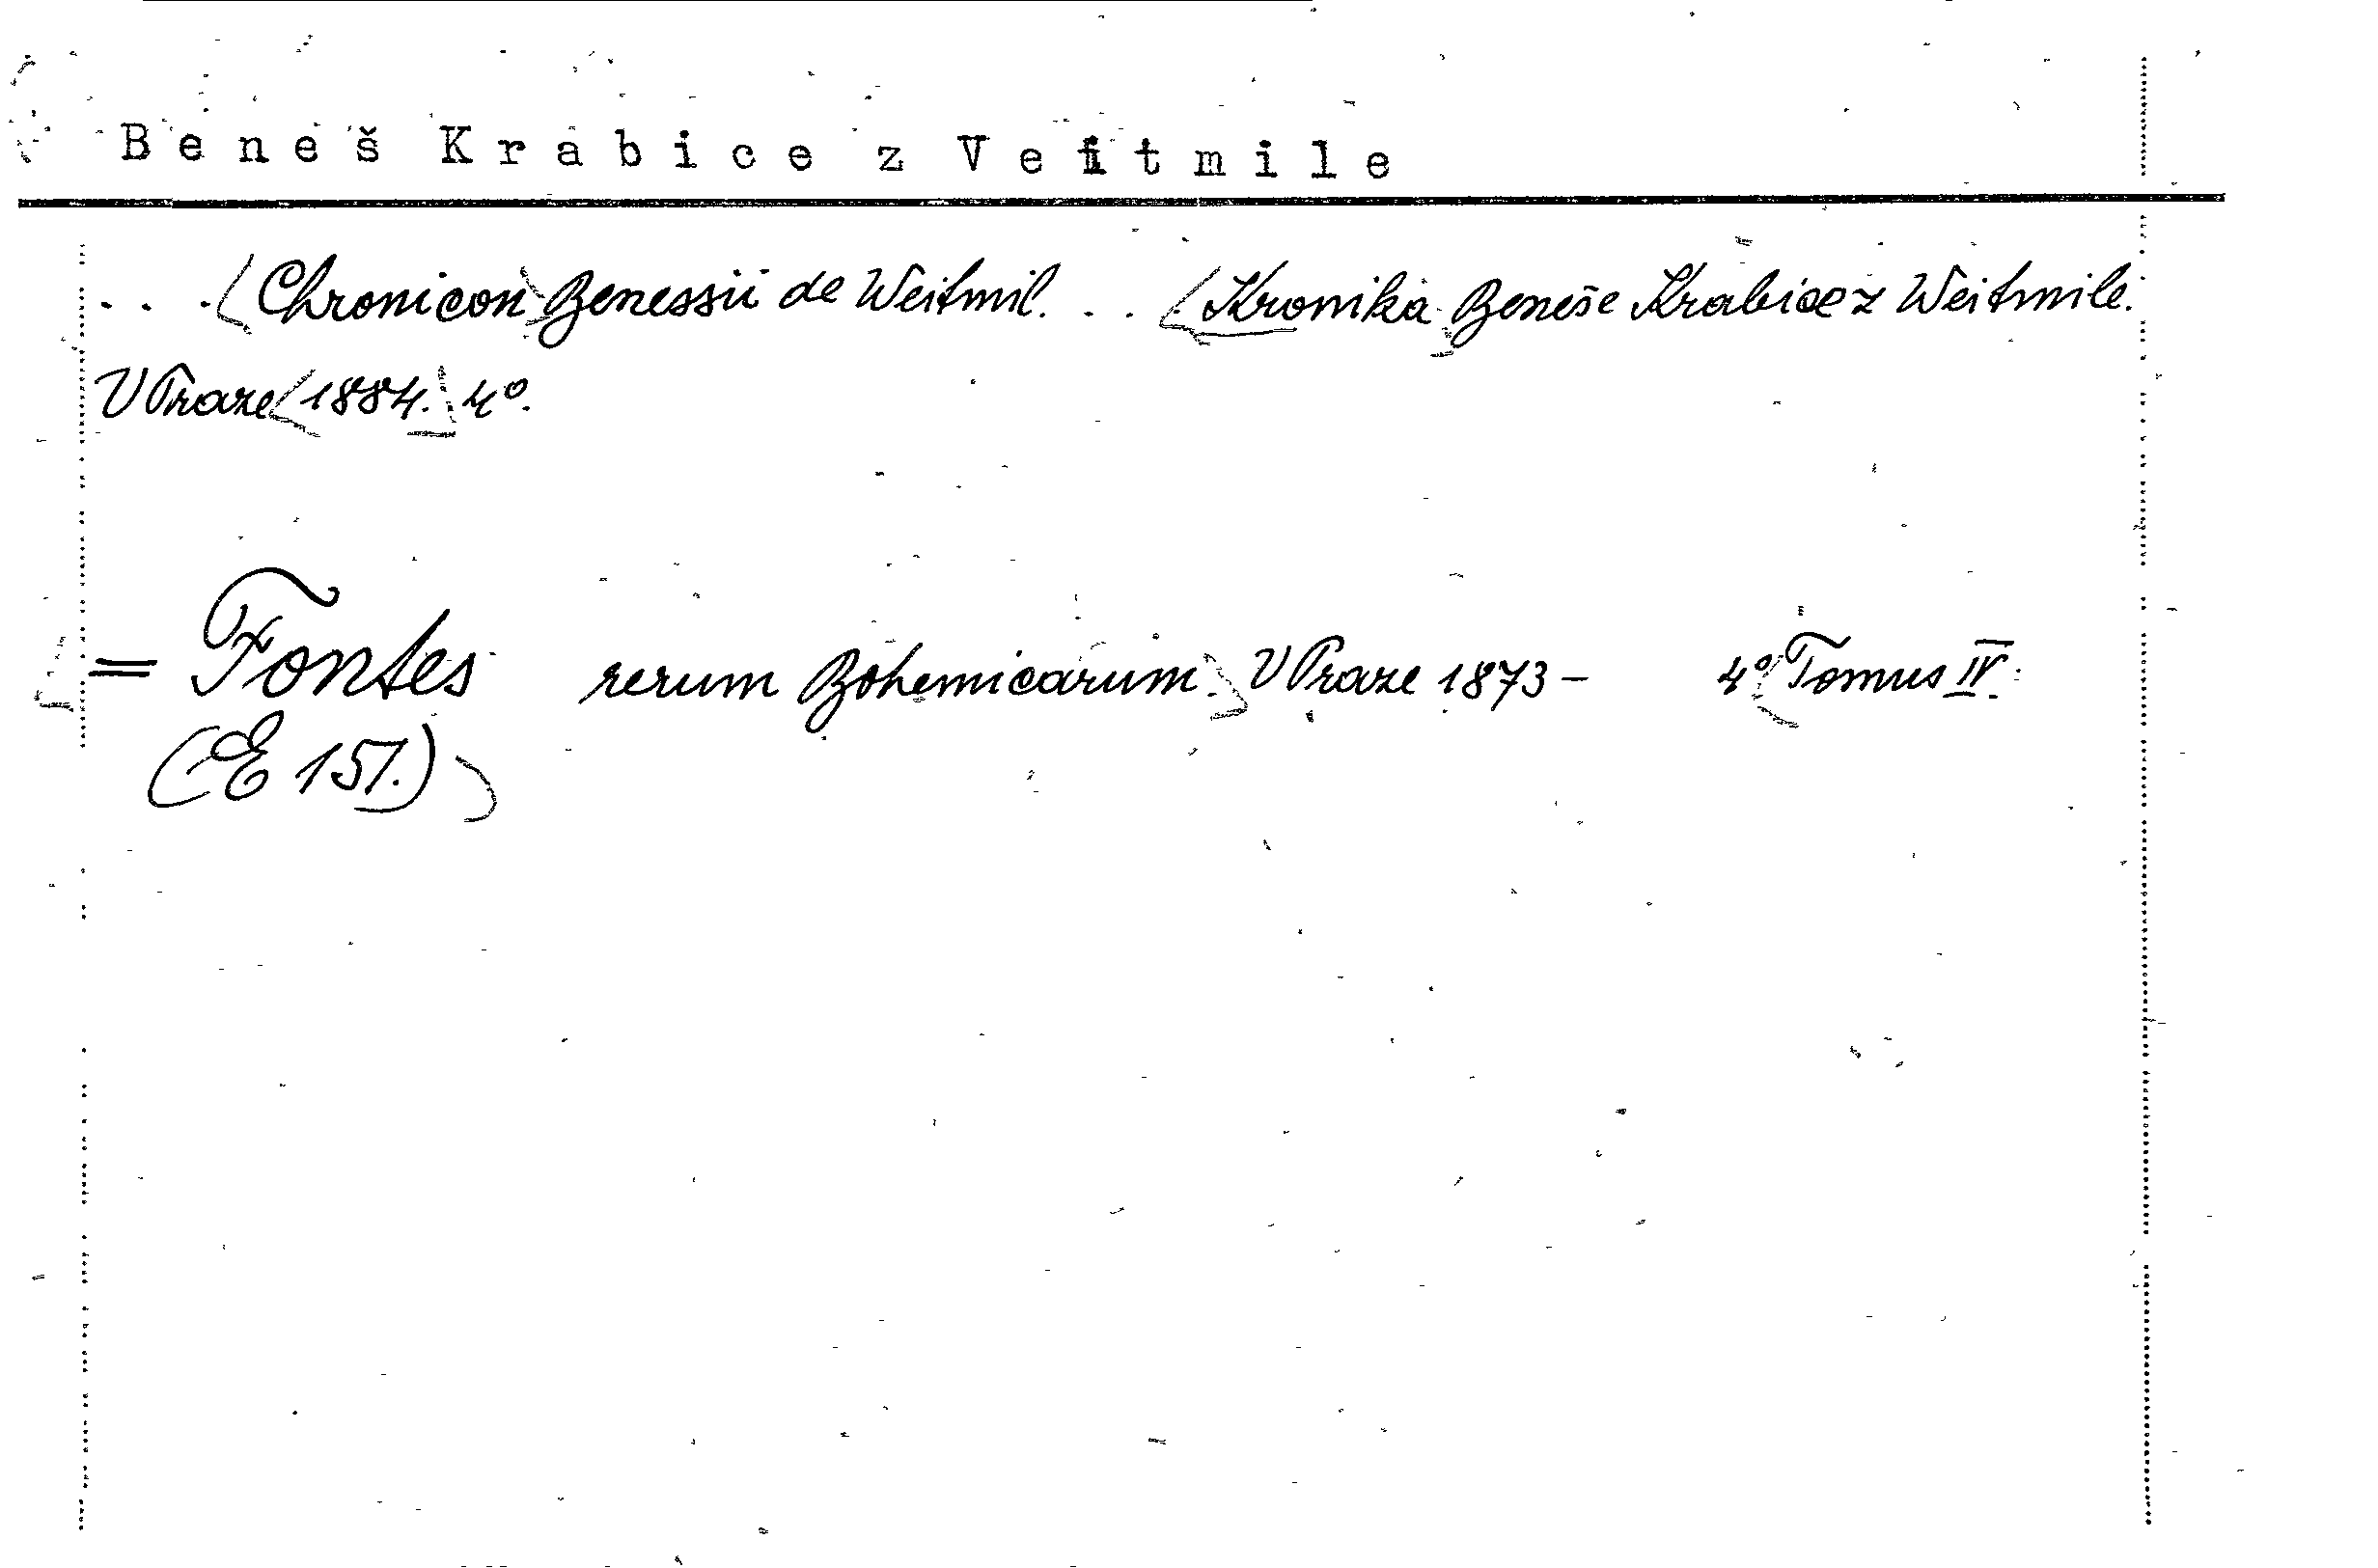 Beneš Krabice z Veitmile
... Chronicon Benessii de Weitmil. .. Kronika Beneše Krabice z Weitmile.
V Praze 1884. 4°.
= Fontes rerum Bohemicarum. V Praze 1873 - 4° Tomus IV.
(E 151.)